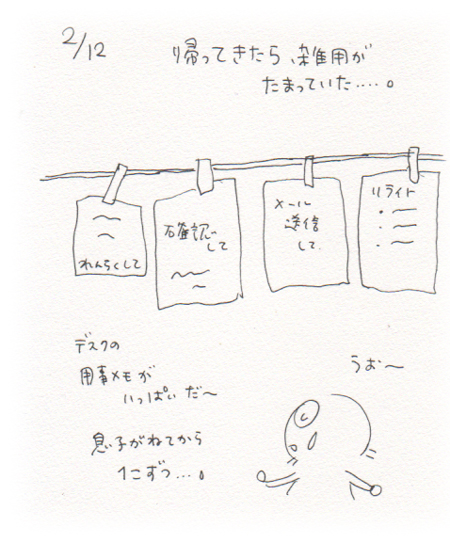 2/12
帰ってきたら、雑用が
たまっていた....。
れんらくして
確認して
メール
送信
して
リライト
デスクの
用事メモが
いっぱいだ〜
うお〜
息子がねてから
1こずつ....。